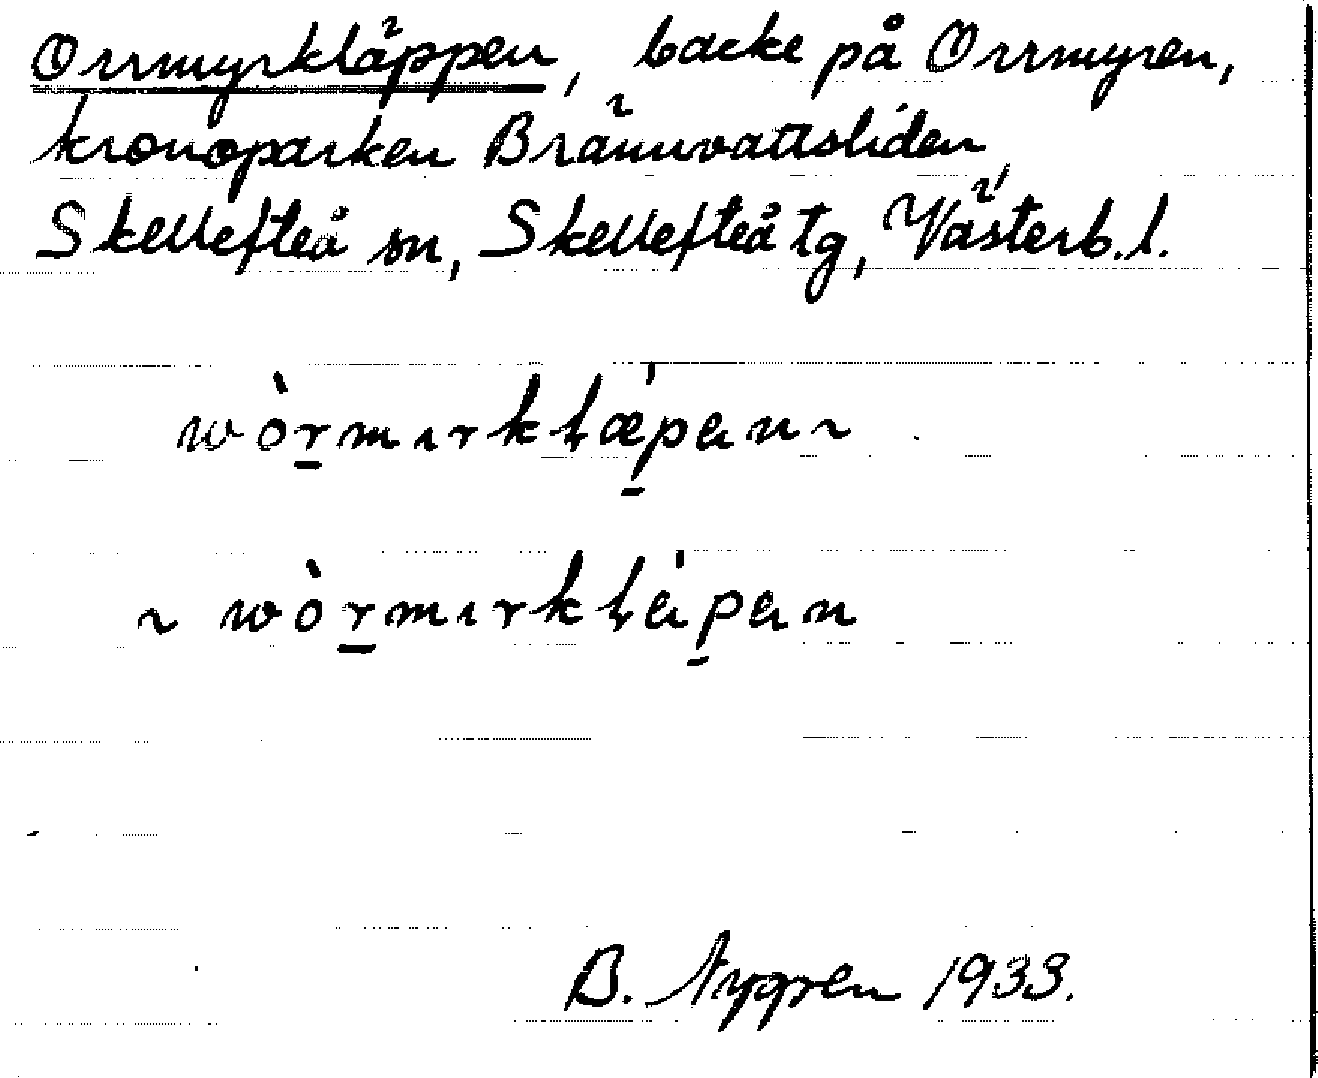 Orrmyrkläppen, backe på Orrmyren,
kronoparken Brännvattsliden,
Skellefteå sn, Skellefteå tg, Västerb. l.
wòr̲mırkłǽp̠ən ~
~ wòr̲mırkłép̠ən
B. Nygren 1933.